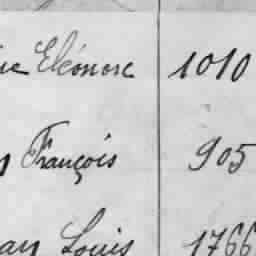 Eléonore 1010
François 905
Louis 1766